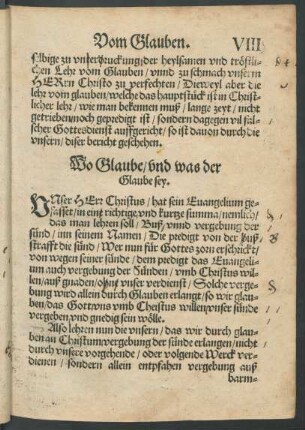 Vom Glauben. VIII
selbige zu vnterdruckung der heylsamen vnd tröstli-
chen Lehr vom Glauben / vnnd zu schmach vnserm
HERrn Christo zu verfechten / Dieweyl aber die
lehr vom glauben / welche das hauptstück ist in Christ-
licher lehr / wie man bekennen muß / lange zeyt / nicht
getrieben noch gepredigt ist / sondern dagegen vil fal-
scher Gottesdienst auffgericht / so ist dauon durch die
vnsern / diser bericht geschehen.
Wo Glaube / vnd was der
Glaube sey.
VNser HErr Christus / hat sein Euangelium ge-
fasset / in eine richtige vnd kurtze summa / nemlich /
das man lehren soll / Buß / vnnd vergebung der
sünd / inn seinem Namen / Die predigt von der Buß
strafft die sünd / Wer nun für Gottes zorn erschrickt /
von wegen seiner sünde / dem predigt das Euangeli-
um auch vergebung der sünden / vmb Christus wil-
len / auß gnaden / ohn vnser verdienst / Solche verge-
bung wird allein durch Glauben erlangt / so wir glau-
ben / das Gott vns vmb Christus willen / vnser sünde
vergeben / vnd gnedig sein wölle.
Also lehren nun die vnsern / das wir durch glau-
ben an Christum vergebung der sünde erlangen / nicht
durch vnsere vorgehende / oder volgende Werck ver-
dienen / sondern allein entpfahen vergebung auß
barm-